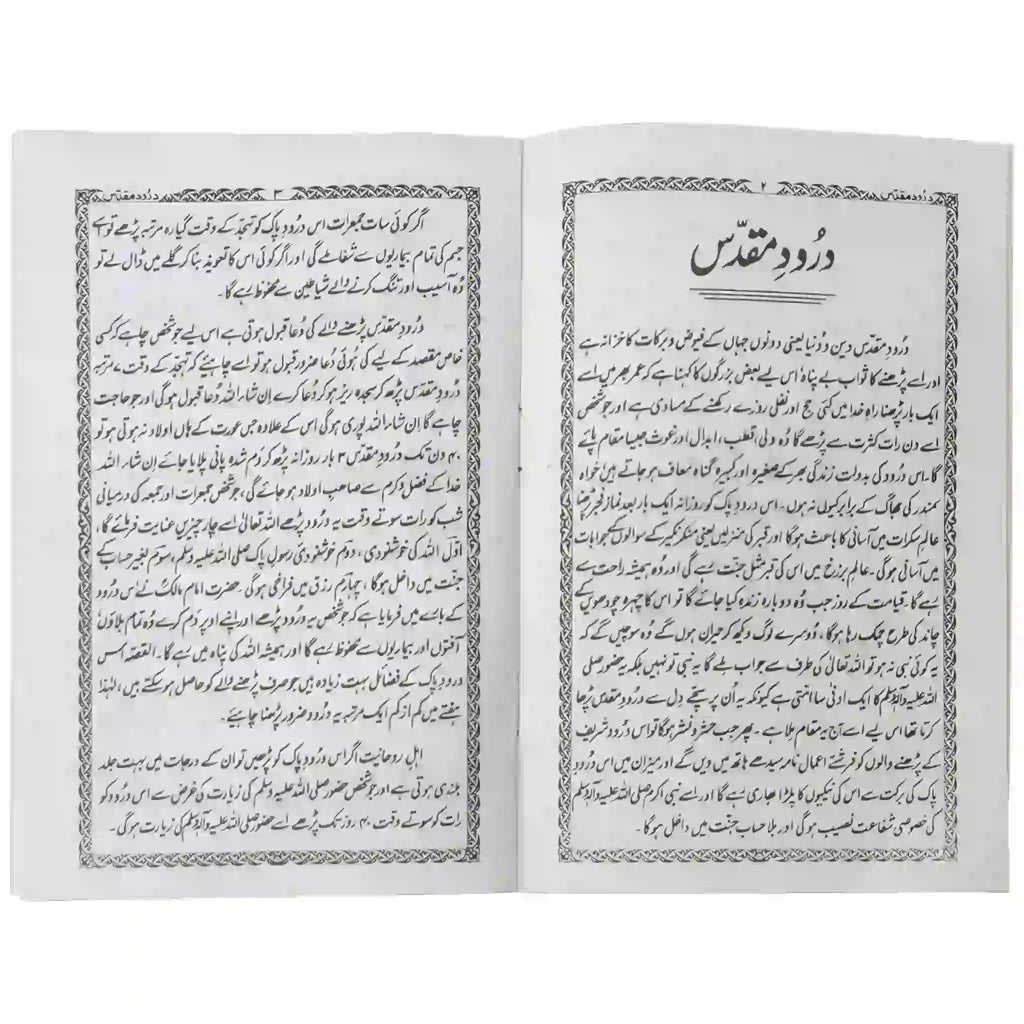 درود مقدس
۲
دُرُودِ مقدّس
دُرودِ مقدّس دین و دُنیا یعنی دونوں جہاں کے فیوض و برکات کا خزانہ ہے
اور اسے پڑھنے کا ثواب بے پناہ ہے اس لیے بعض بزرگوں کا کہنا ہے کہ عمر بھر میں اسے
ایک بار پڑھنا راہِ خدا میں کئی حج اور نفلی روزے رکھنے کے مساوی ہے اور جو شخص
اسے دن رات کثرت سے پڑھے گا وُہ ولی، قطب، ابدال اور غوث جیسا مقام پائے
گا۔ اس درود کی بدولت زندگی بھر کے صغیرہ اور کبیرہ گناہ معاف ہو جاتے ہیں خواہ
سمندر کی جھاگ کے برابر کیوں نہ ہوں۔ اس درودِ پاک کو روزانہ ایک بار بعد نماز فجر پڑھنا
عالمِ سکرات میں آسانی کا باعث ہوگا اور قبر کی منزلیں یعنی منکر نکیر کے سوالوں کے جوابات
میں آسانی ہوگی۔ عالمِ برزخ میں اس کی قبر مثلِ جنّت رہے گی اور وُہ ہمیشہ راحت سے
رہے گا۔ قیامت کے روز جب وُہ دوبارہ زندہ کیا جائے گا تو اس کا چہرہ چودھویں کے
چاند کی طرح چمک رہا ہوگا، دُوسرے لوگ دیکھ کر حیران ہوں گے وُہ سوچیں گے کہ
یہ کوئی نبی نہ ہو تو اللہ تعالیٰ کی طرف سے جواب ملے گا یہ نبی تو نہیں بلکہ یہ حضور صلی
اللہ علیہ وآلہٖ وسلم کا ایک ادنیٰ سا اُمتی ہے کیونکہ یہ اُن پر سچے دِل سے درودِ مقدّس پڑھا
کرتا تھا اس لیے اسے آج یہ مقام ملا ہے۔ پھر جب حشر و نشر ہوگا تو اس دُرود شریف
کے پڑھنے والوں کو فرشتے اعمال نامہ سیدھے ہاتھ میں دیں گے اور میزان میں اس دُرودِ
پاک کی برکت سے اس کی نیکیوں کا پلڑا بھاری رہے گا اور اسے نبی اکرم صلی اللہ علیہ وآلہٖ وسلم
کی خصوصی شفاعت نصیب ہوگی اور بلا حساب جنّت میں داخل ہوگا۔
درود مقدس
۳
اگر کوئی سات جمعرات اس دُرودِ پاک کو تہجّد کے وقت گیارہ مرتبہ پڑھے تو اسے
جسم کی تمام بیماریوں سے شفا ملے گی اور اگر کوئی اس کا تعویذ بنا کر گلے میں ڈال لے تو
وُہ آسیب اور تنگ کرنے والے شیاطین سے محفوظ رہے گا۔
دُرودِ مقدّس پڑھنے والے کی دُعا قبول ہوتی ہے اس لیے جو شخص چاہے کہ کسی
خاص مقصد کے لیے کی ہُوئی دُعا ضرور قبول ہو تو اسے چاہیئے کہ تہجّد کے وقت ۷ مرتبہ
دُرودِ مقدّس پڑھ کر سجدہ ریز ہو کر دُعا کرے اِن شاء اللہ دُعا قبول ہوگی اور جو حاجت
چاہے گا اِن شاء اللہ پوری ہوگی اس کے علاوہ جس عورت کے ہاں اولاد نہ ہوتی ہو تو
۴۰ دن تک دُرودِ مقدّس ۳ بار روزانہ پڑھ کر دَم شدہ پانی پلایا جائے اِن شاء اللہ
خدا کے فضل و کرم سے صاحبِ اولاد ہو جائے گی، جو شخص جمعرات اور جمعہ کی درمیانی
شب کو رات سوتے وقت یہ دُرود پڑھے اللہ تعالیٰ اسے چار چیزیں عنایت فرمائے گا،
اوّل اللہ کی خوشنودی، دوَم خوشنودیٔ رسولِ پاک صلی اللہ علیہ وسلم، سوَم بغیر حساب کے
جنّت میں داخل ہوگا، چہارم رزق میں فراخی ہوگی۔ حضرت امام مالکؒ نے اس درود
کے بارے میں فرمایا ہے کہ جو شخص یہ دُرود پڑھے اور اپنے اُوپر دَم کرے وُہ تمام بلاؤں
آفتوں اور بیماریوں سے محفوظ رہے گا اور ہمیشہ اللہ کی پناہ میں رہے گا۔ القصّہ اس
درودِ پاک کے فضائل بہت زیادہ ہیں جو صرف پڑھنے والے کو حاصل ہو سکتے ہیں، لہٰذا
ہفتے میں کم از کم ایک مرتبہ یہ دُرود ضرور پڑھنا چاہیے۔
اہلِ روحانیت اگر اس دُرودِ پاک کو پڑھیں تو ان کے درجات میں بہت جلد
بلندی ہوتی ہے اور جو شخص حضور صلی اللہ علیہ وسلم کی زیارت کی غرض سے اس دُرود کو
رات کو سوتے وقت ۴۰ روز تک پڑھے اسے حضور صلی اللہ علیہ وآلہٖ وسلم کی زیارت ہوگی۔